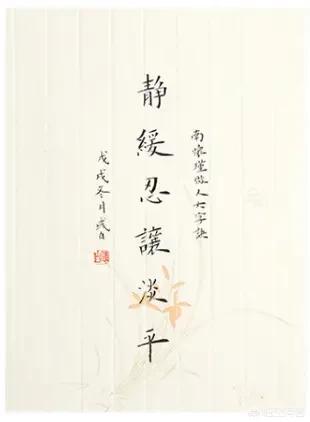 南懷瑾做人六字訣
靜緩忍讓淡平
戊戌冬月